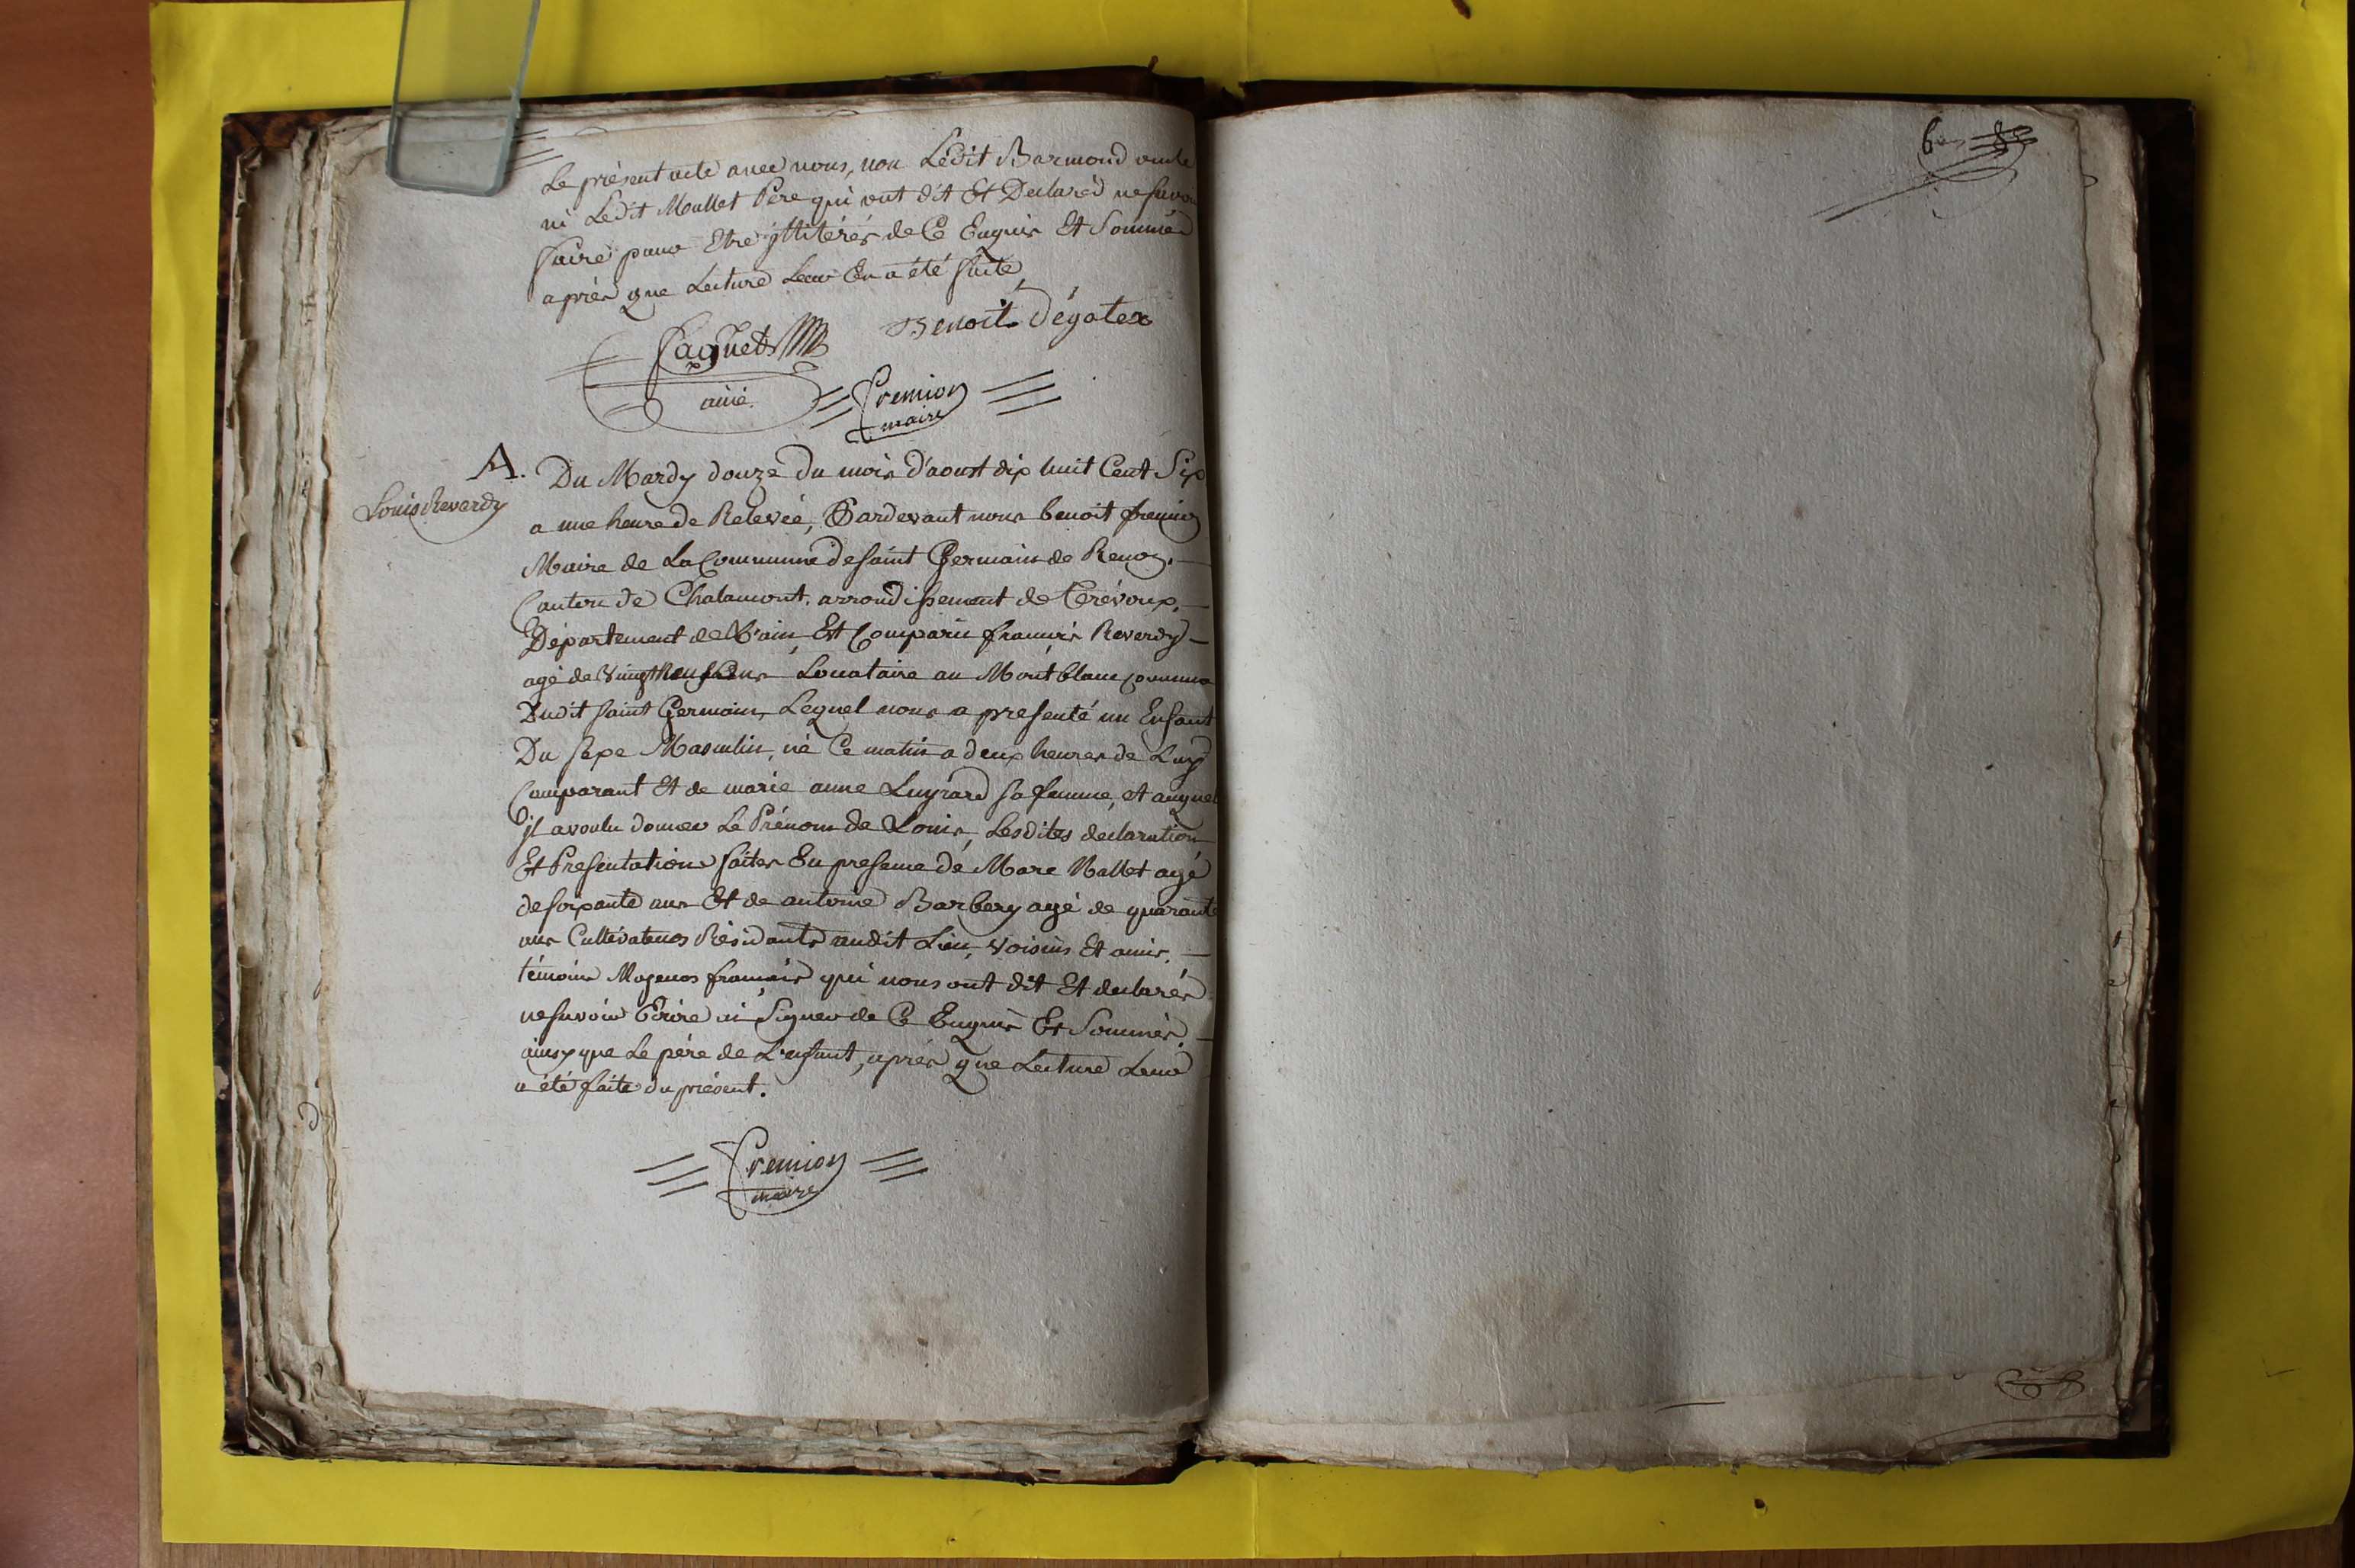 Le présent acte avec nous, non Ledit Barmond oncle
ni Ledit Moullet Père qui ont dit Et Declaréd ne savoir
faire pour Etre yllitérés de Ce Enquis Et Sommés
après que Lecture Leur En a été faite
Benoit dégatex
Paquet
ainé.
fremion
maire
A. Du Mardy douze du mois d'aoust dix huit Cent Six
Louis Reverdy
a une heure de Relevée, Pardevant nous benoit fremion
Maire de La Commune de saint Germain de Renon,
Canton de Chalamont, arrondissement de trévoux,
Département de L'ain, Est Comparu françois Reverdy
agé de vingt neuf ans Locataire au Montblanc commune
Dudit saint Germain, Lequel nous a presenté un Enfant
Du sexe Masculin, né Ce matin a deux heures de Luy
Comparant Et de marie anne sa femme, et auquel
il a voulu donner Le Prénom de Louis, Lesdites declaration
Et Presentation faites En presence de Marc Mallet agé
de soixante ans Et de antoine Barbery agé de quarante
ans Cultivateurs Résidants audit Lieu, voisins Et amis,
témoins Majeurs français qui nous ont dit Et declarés
ne savoir Ecrire ni Signer de Ce Enquis Et Sommés,
ainsy que Le père de L'enfant, après que Lecture Leur
a été faite du présent.
fremion
maire